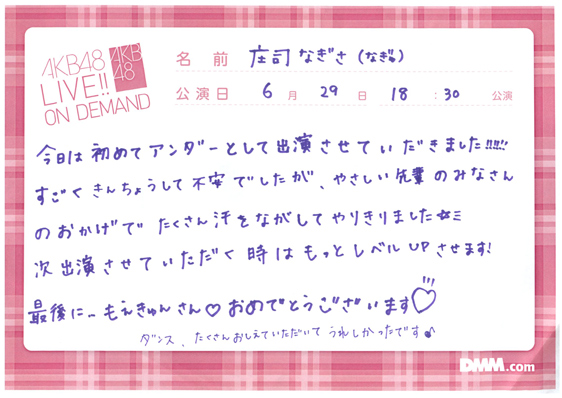 AKB48
LIVE!!
ON DEMAND
AKB
48
名前 庄司なぎさ(なぎゅ)
公演日 6月 29日 18:30 公演
今日は初めてアンダーとして出演させていただきました!!!!!
すごくきんちょうして不安でしたが、やさしい先輩のみなさん
のおかげでたくさん汗をながしてやりきりました☆ミ
次出演させていただく時はもっとレベルUPさせます!
最後に…もえきゅんさん♡おめでとうございます♡
ダンス、たくさんおしえていただいてうれしかったです♪
DMM.com